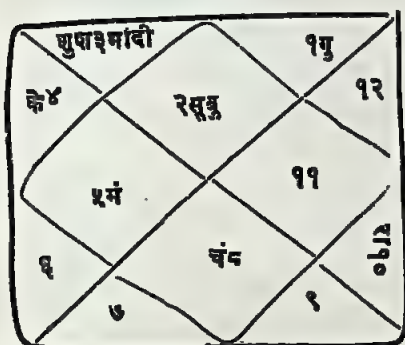 शुश३मांदी
१गु
के४
२सूबु
१२
५मं
११
६
चं८
रा१०
७
९